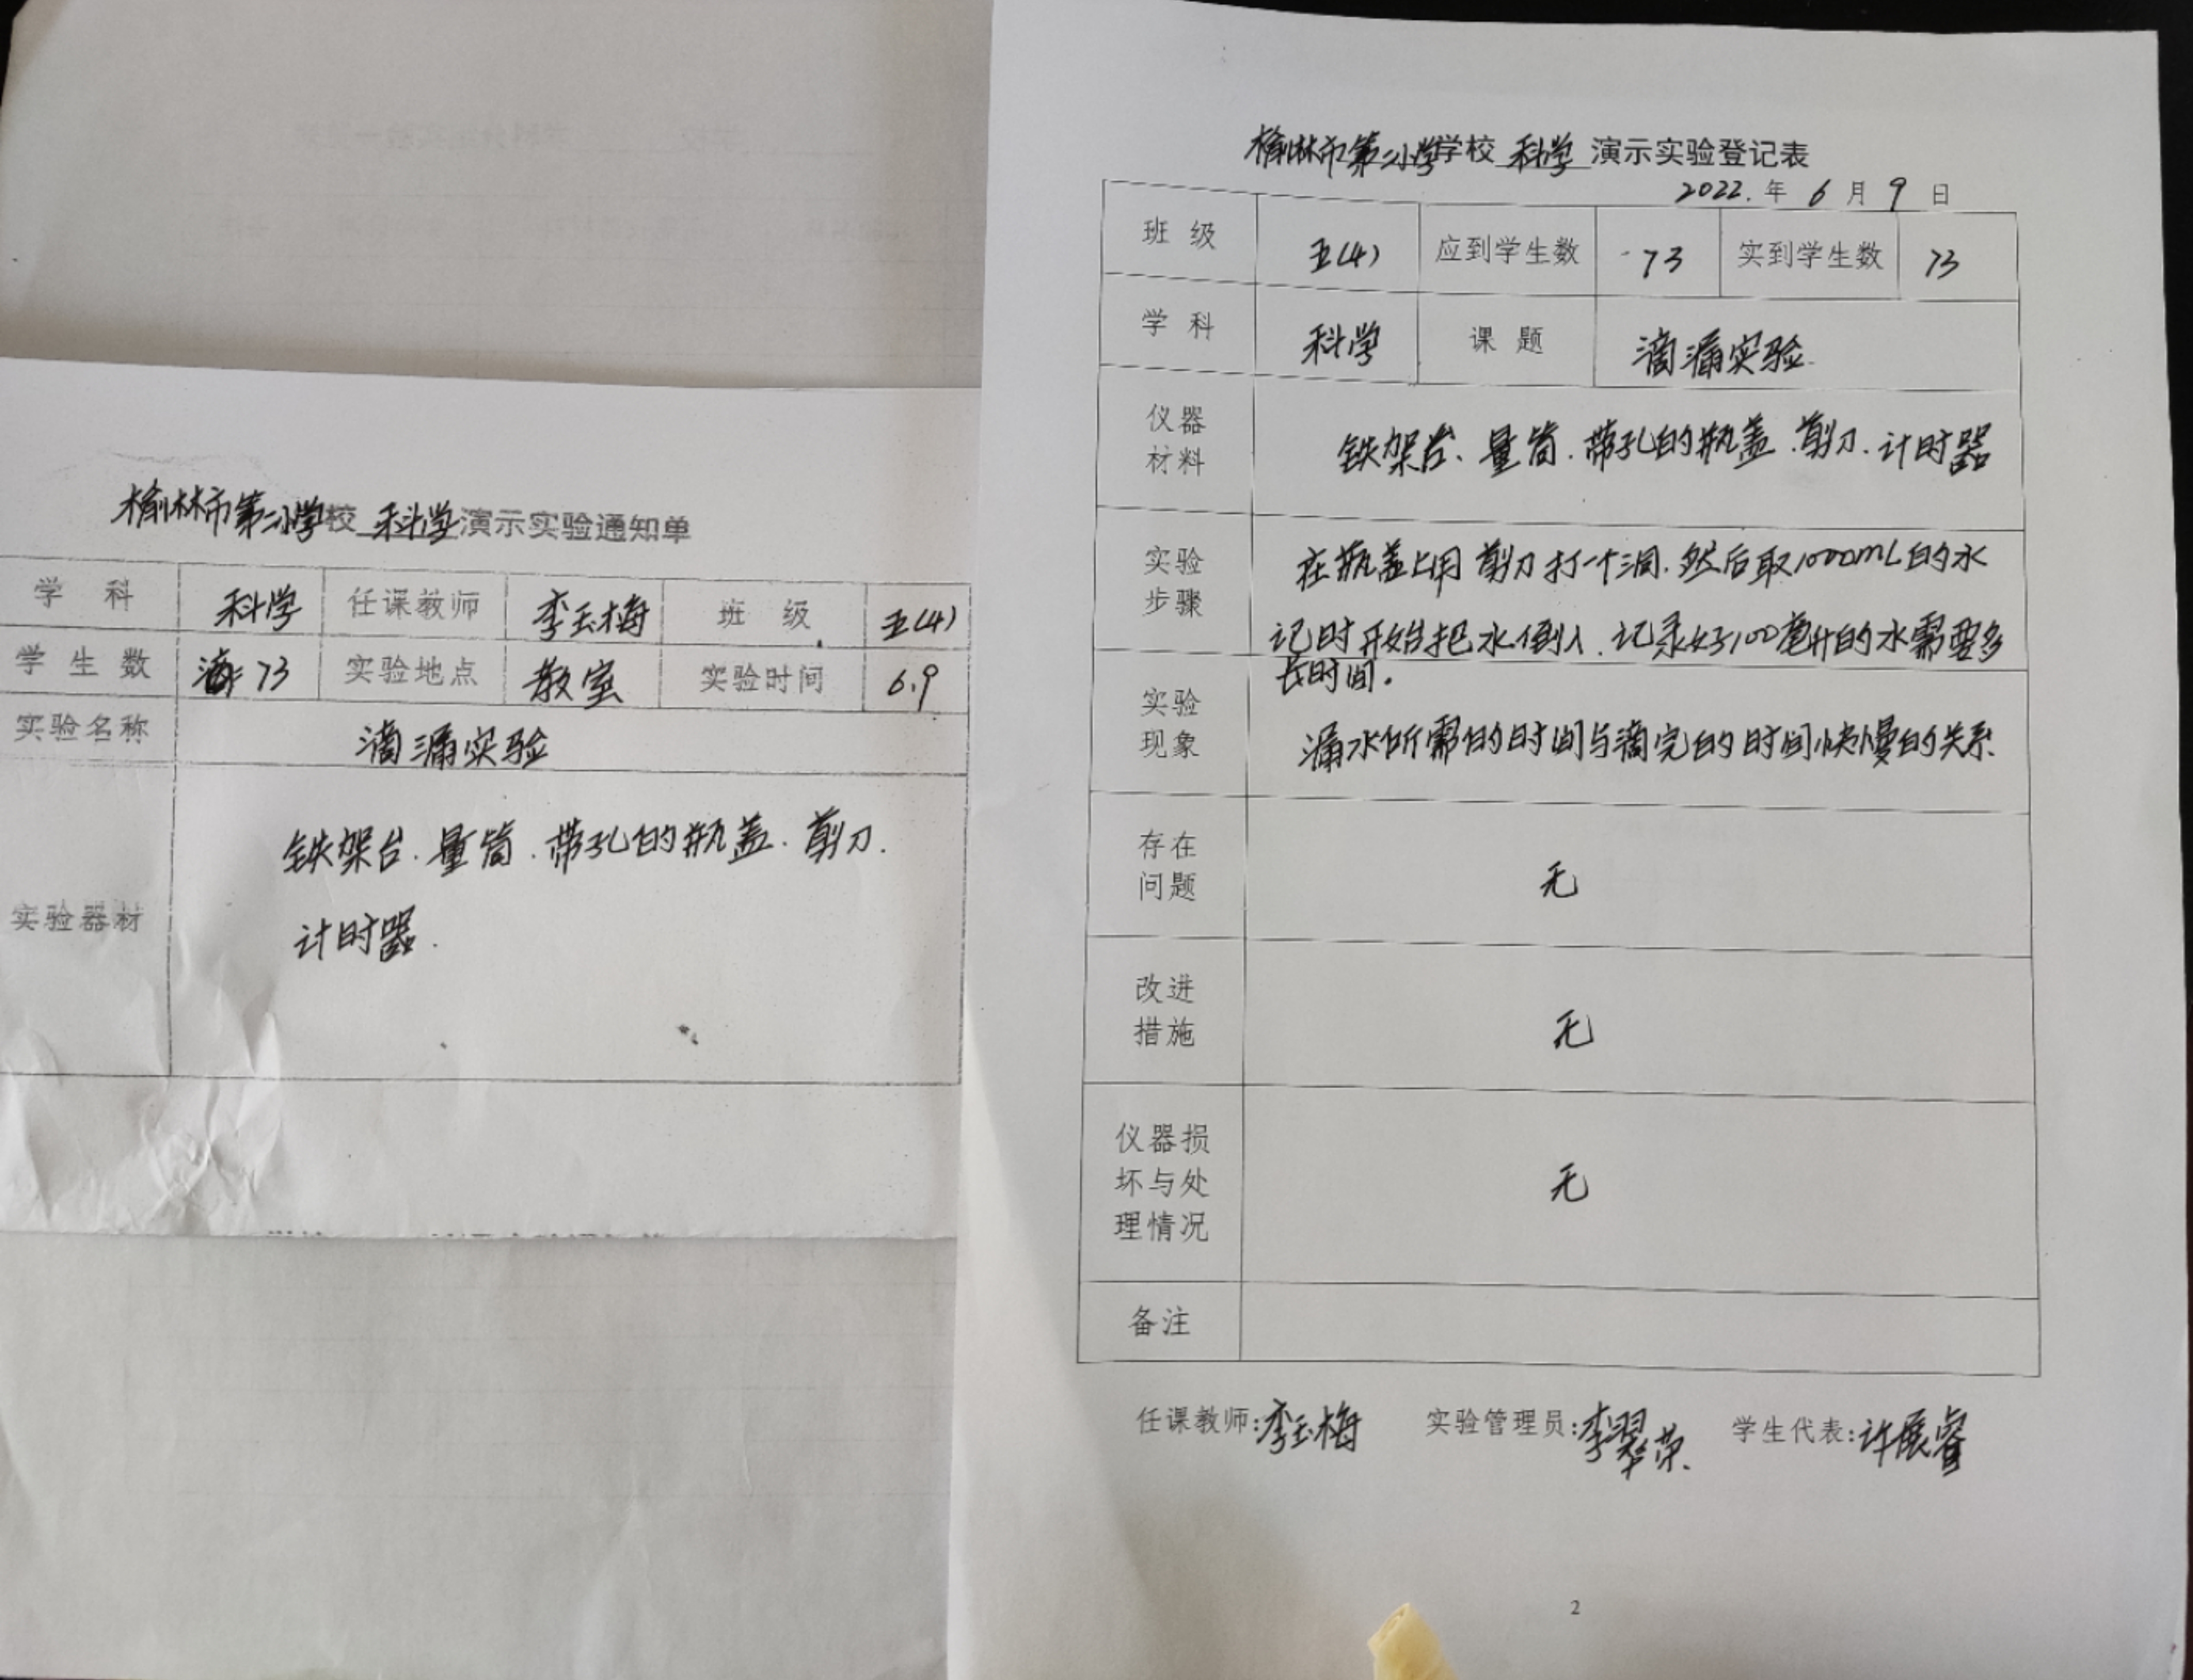 榆林市第二小学校 科学 演示实验通知单
学 科 科学 任课教师 李玉梅 班 级 五(4)
学 生 数 73 实验地点 教室 实验时间 6.9
实验名称 滴漏实验
实验器材 铁架台.量筒.带孔的瓶盖.剪刀.
计时器.
榆林市第二小学学校 科学 演示实验登记表
2022.年 6 月 9 日
班 级 五(4) 应到学生数 73 实到学生数 73
学 科 科学 课 题 滴漏实验.
仪器
材料
铁架台、量筒.带孔的瓶盖.剪刀.计时器
实验
步骤
在瓶盖上用剪刀打一个洞.然后取1000mL的水
记时开始把水倒入.记录好100毫升的水需要多
长时间。
实验
现象
漏水所需的时间与滴完的时间快慢的关系.
存在
问题
无
改进
措施
无
仪器损
坏与处
理情况
无
备注
任课教师:李玉梅 实验管理员:李翠荣. 学生代表:许展睿
2